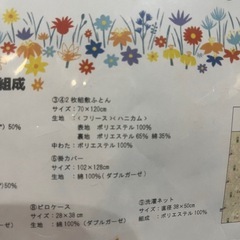 組成
③④2枚組敷ふとん
サイズ：70×120cm
生地　：（フリース）×（ハニカム）
表地　ポリエステル100%
裏地　ポリエステル65% 綿35%
中わた：ポリエステル100%
) 50%
⑤掛カバー
サイズ：102×128cm
生地　：綿100%（ダブルガーゼ）
ゼ）
⑧ピロケース
サイズ：28×38cm
生地　：綿100%（ダブルガーゼ）
) 50%
⑤洗濯ネット
サイズ：直径38×50cm
組成　：ポリエステル100%